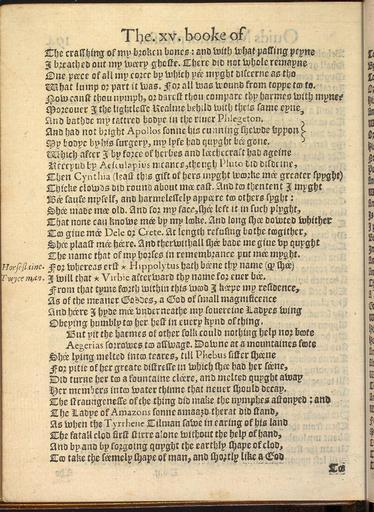 The. xv. booke of
The crasshing of my broken bones: and with what passing peyne
I breathed out my weery ghoste. There did not whole remayne
One peece of all my corce by which yée myght discerne as tho
What lump or part it was. For all was wound from toppe to to.
Now canst thou nymph, or darest thou compare thy harmes with myne?
Moreouer I the lightlesse Realme behild with theis same eyne,
And bathde my tattred bodye in the riuer Phlegeton,
And had not bright Apollos sonne his cunning shewde vppon
My bodye by his surgery, my lyfe had quyght bée gone.
Which after I by force of herbes and léechecraft had ageine
Receyud by Aesculapius meanes, though Pluto did disdeine,
Then Cynthia (least this gift of hers myght woorke mée greater spyght)
Thicke clowds did round about mée cast. And too thentent I myght
Bée saufe myself, and harmelessely appéere too others syght:
Shée made mée old. And for my face, shée left it in such plyght,
That none can knowe mée by my looke. And long shée dowted whither
Too giue mée Dele or Crete. At length refusing bothe toogither,
Shée plaast mée héere. And therwithall shée bade me giue vp quyght
The name that of my horses in remembrance put mée myght.
Horsestine. For whereas erst * Hippolytus hath béene thy name (q shée)
Twyce man. I will that * Virbie afterward thy name for euer bée.
From that tyme foorth within this wood I kéepe my residence,
As of the meaner Goddes, a God of small magnificence
And héere I hyde mée vnderneathe my souereine Ladyes wing
Obeying humbly too her hest in euery kynd of thing.
But yit the harmes of other folk could nothing help nor boote
Aegerias sorrowes too asswage. Downe at a mountaines foote
Shée lying melted intoo teares, till Phebus sister shéene
For pitie of her greate distresse in which shée had her séene,
Did turne her too a fountaine cléere, and melted quyght away
Her members intoo water thinne that neuer should decay.
The straungenesse of the thing did make the nymphes astonyed: and
The Ladye of Amazons sonne amaazd therat did stand,
As when the Tyrrhene Tilman sawe in earing of his land
The fatall clod first stirre alone without the help of hand,
And by and by forgoing quyght the earthly shape of clod,
Too take the séemely shape of man, and shortly like a God
Too